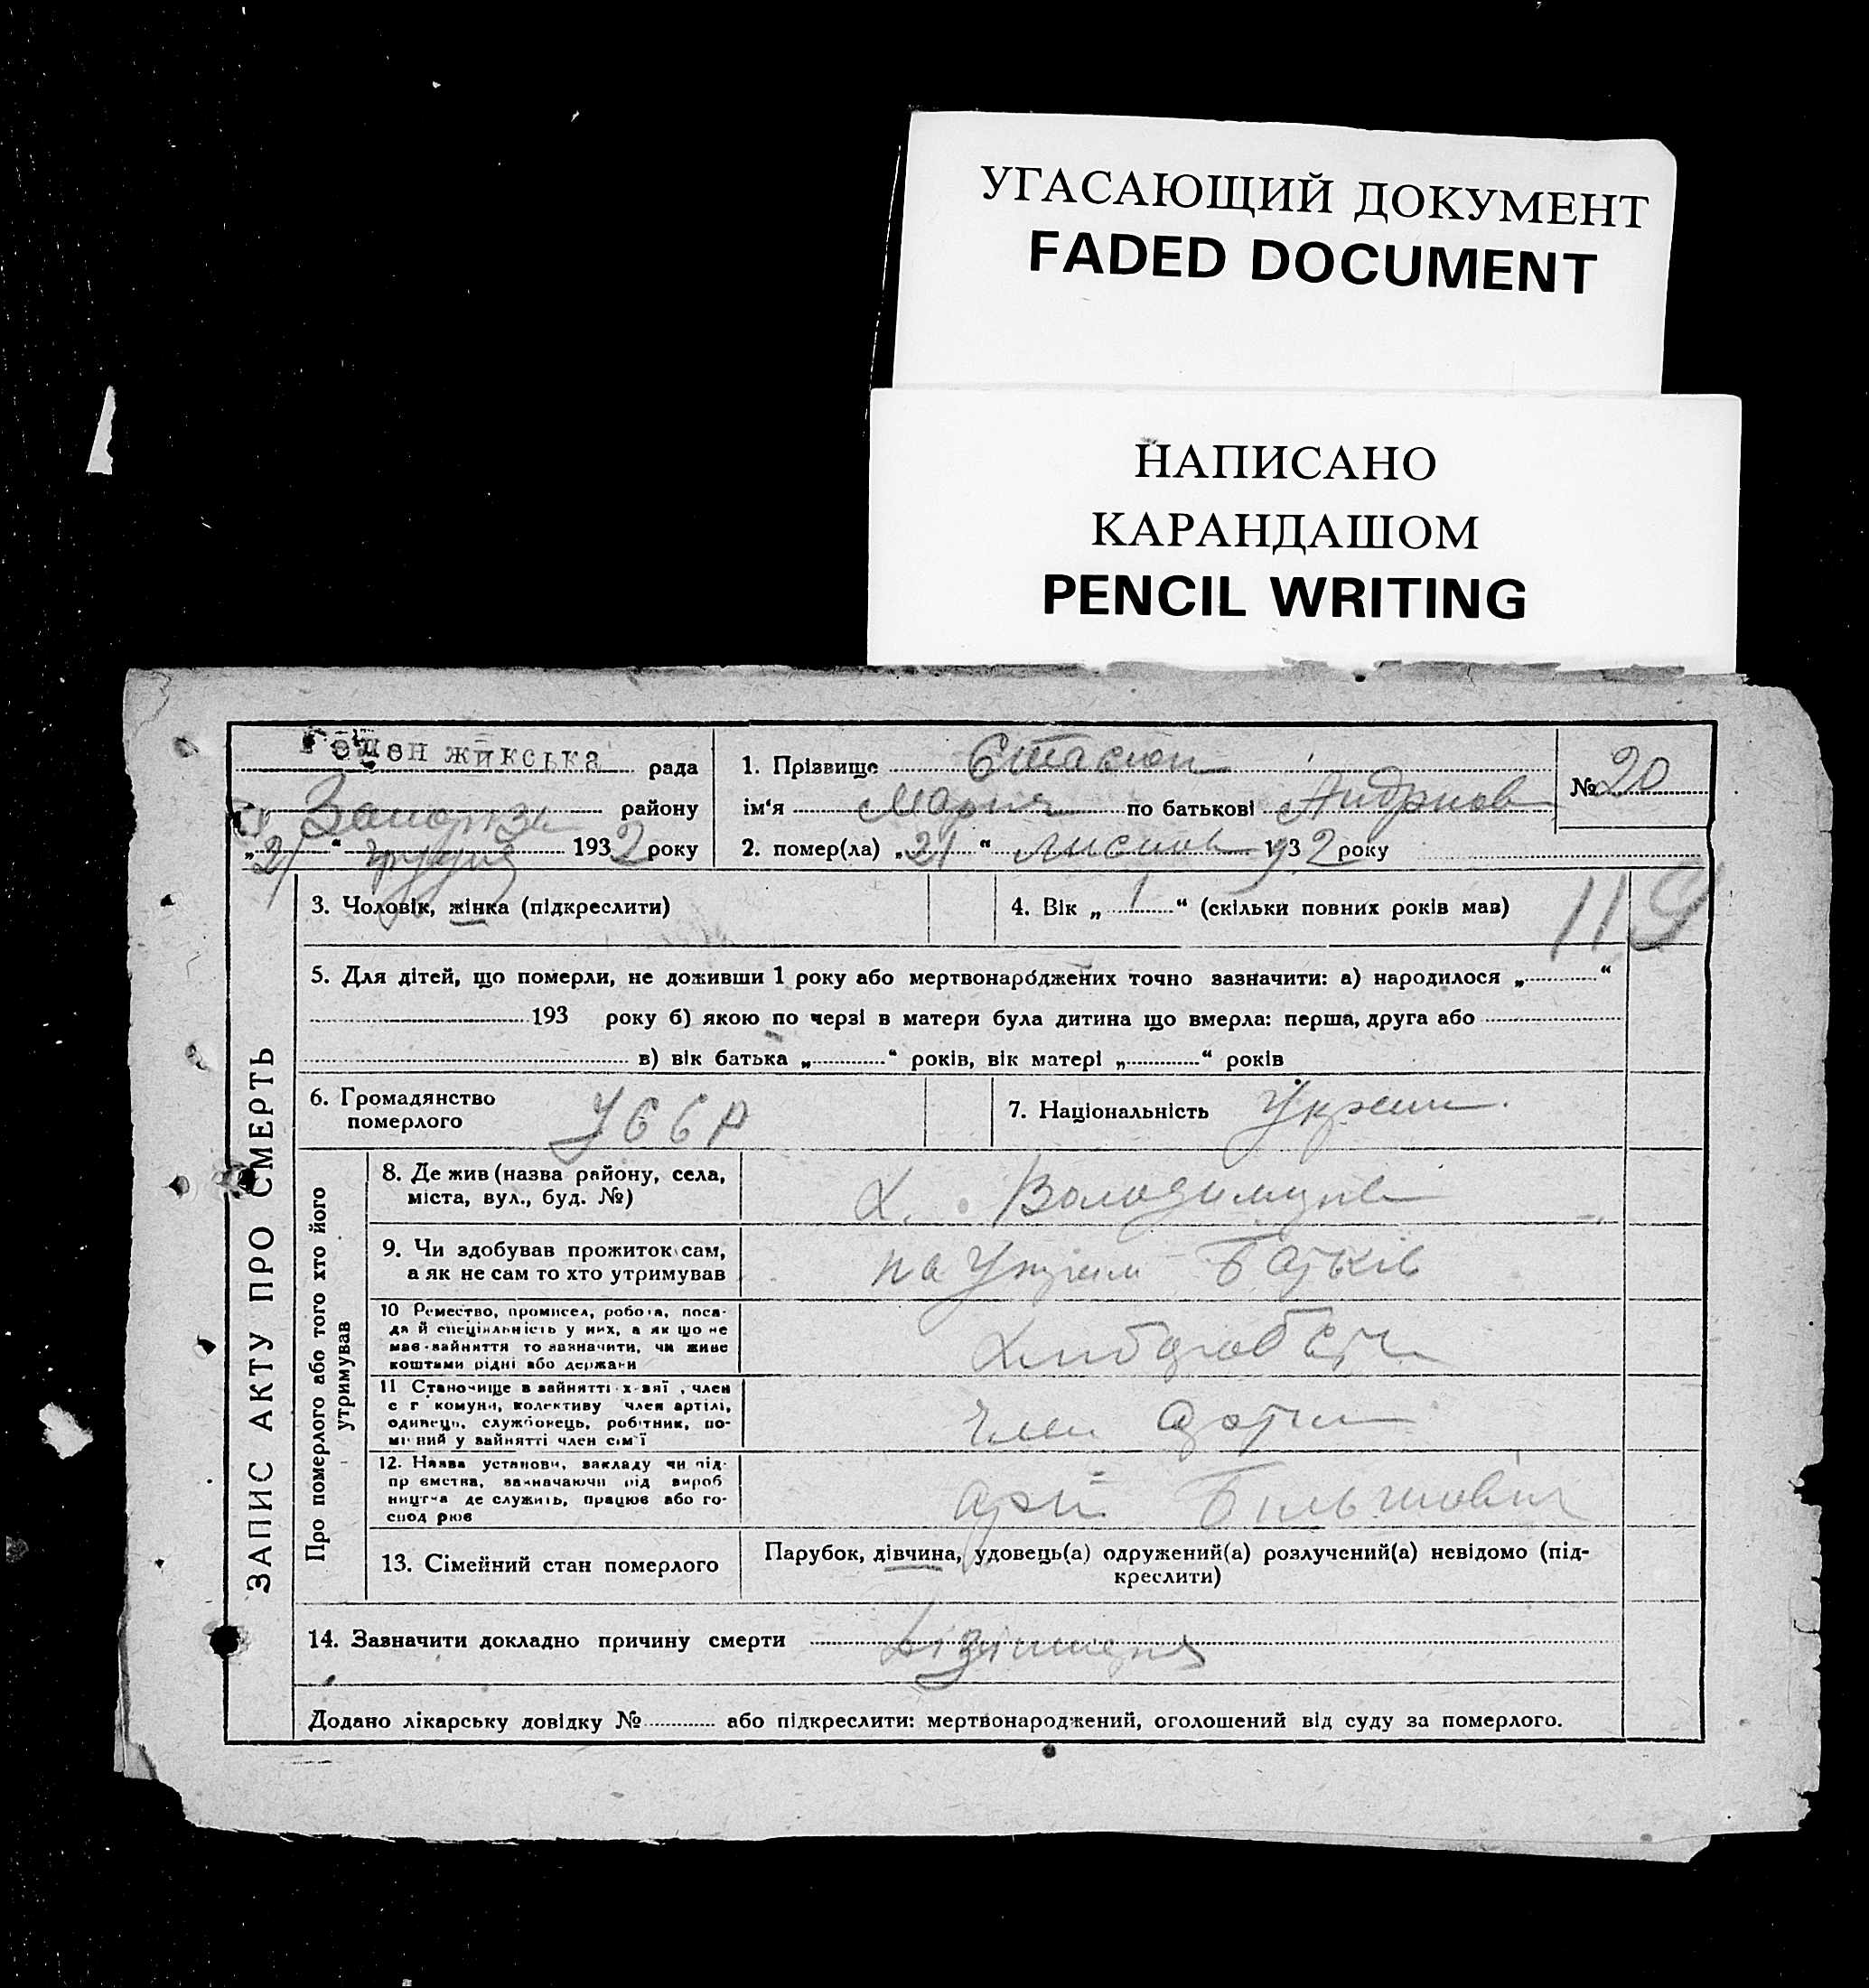 УГАСАЮЩИЙ ДОКУМЕНТ
FADED DOCUMENT
НАПИСАНО
КАРАНДАШОМ
PENCIL WRITING
рада
району
„21“ грудня 1932 року
1. Прізвище
ім‘я Мария по батькові Андриов
2. помер(ла) „21“ листоп 1932 року
№ 20
119
ЗАПИС АКТУ ПРО СМЕРТЬ
3. Чоловік, жінка (підкреслити)
4. Вік „1“ (скільки повних років мав)
5. Для дітей, що померли, не доживши 1 року або мертвонароджених точно зазначити: а) народилося „ “
193 року б) якою по черзі в матери була дитина що вмерла: перша, друга або
в) вік батька „ “ років, вік матері „ “ років
6. Громадянство
померлого
УССР
7. Національність Украин.
Про померлого або того хто його
утримував
8. Де жив (назва району, села,
міста, вул., буд. №)
Х.
9. Чи здобував прожиток сам,
а як не сам то хто утримував
на Батьків
10 Ремество, промисел, робота, поса-
да й спеціяльність у них, а як що не
має зайняття то зазначити, чи живе
коштами рідні або держави
11 Становище в зайнятті х-вяї, член
с г комуни, колективу член артілі,
одинець, службовець, робітник, по-
мічний у зайнятті член сім‘ї
Член
12. Назва установи, закладу чи під-
пр ємства, зазначаючи рід вироб
ництва де служить, працює або го-
спод рює
13. Сімейний стан померлого
Парубок, дівчина, удовець(а) одружений(а) розлучений(а) невідомо (під-
креслити)
14. Зазначити докладно причину смерти
Додано лікарську довідку № або підкреслити: мертвонароджений, оголошений від суду за померлого.